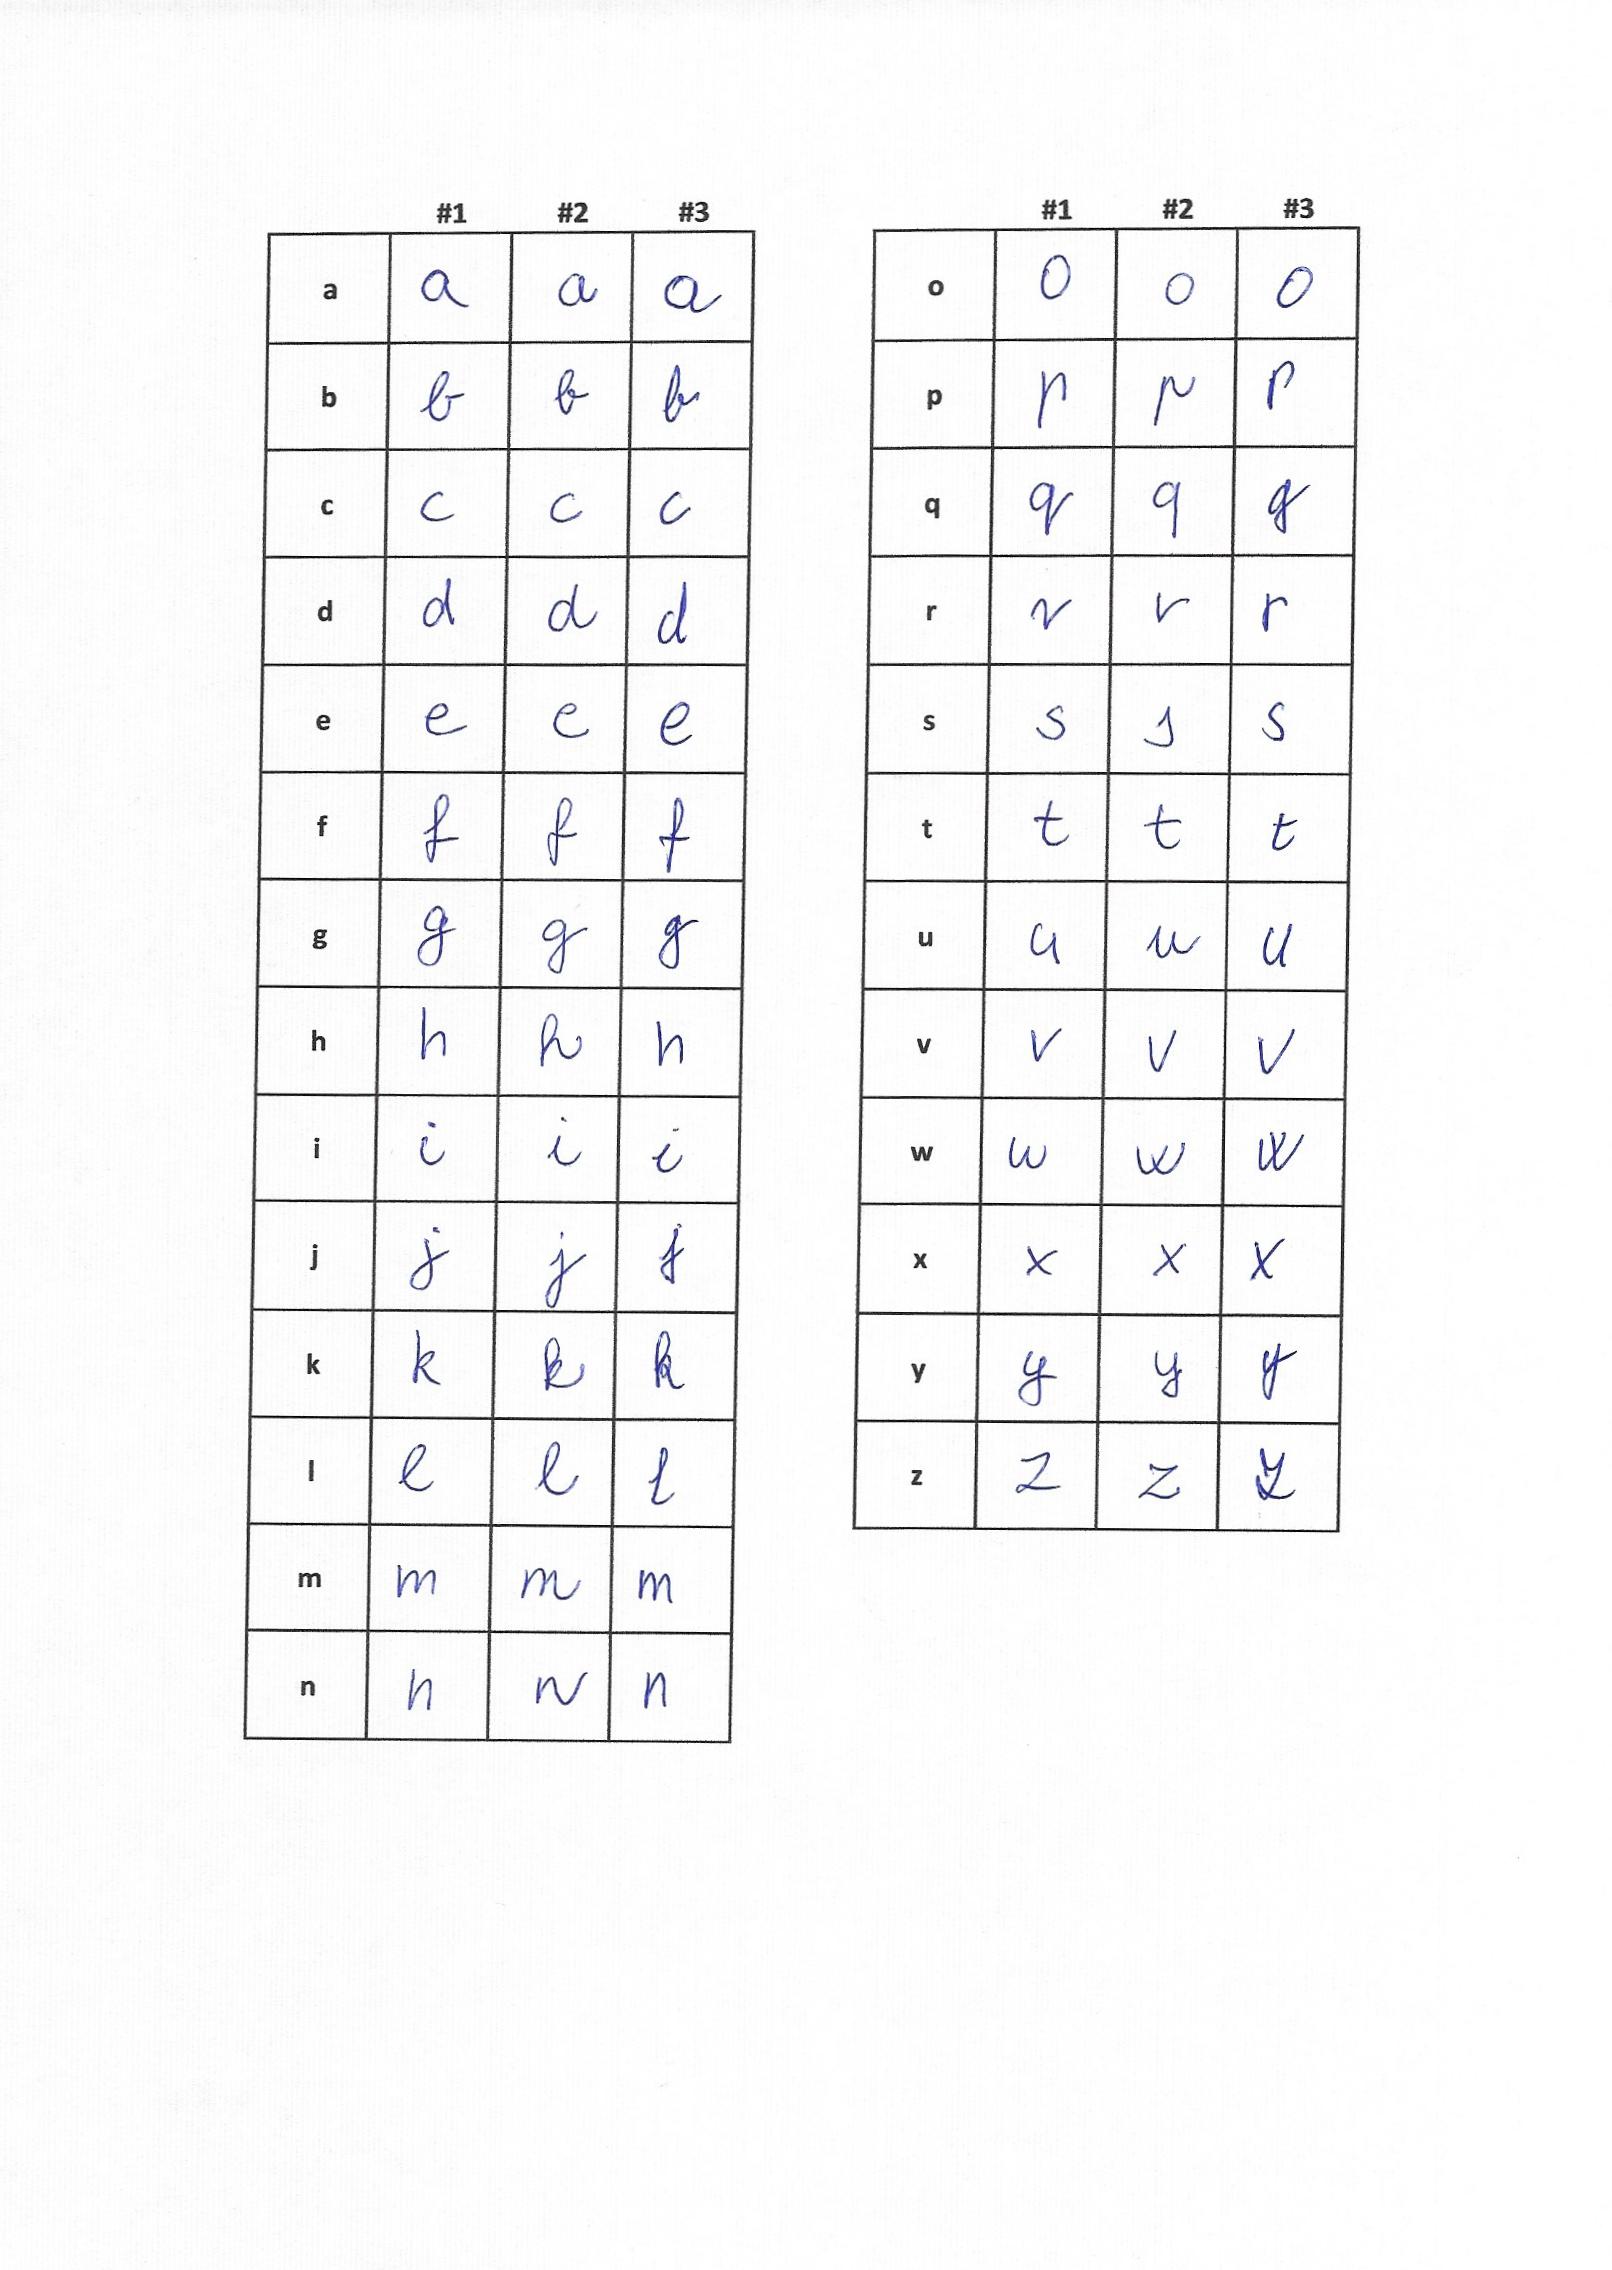 #1 #2 #3
a a a a
b b b b
c c c c
d d d d
e e e e
f f f f
g g g g
h h h h
i i i i
j j j j
k k k k
l l l l
m m m m
n n n n
#1 #2 #3
o o o o
p p p p
q q q q
r r r r
s s s s
t t t t
u u u u
v v v v
w w w w
x x x x
y y y y
z z z z